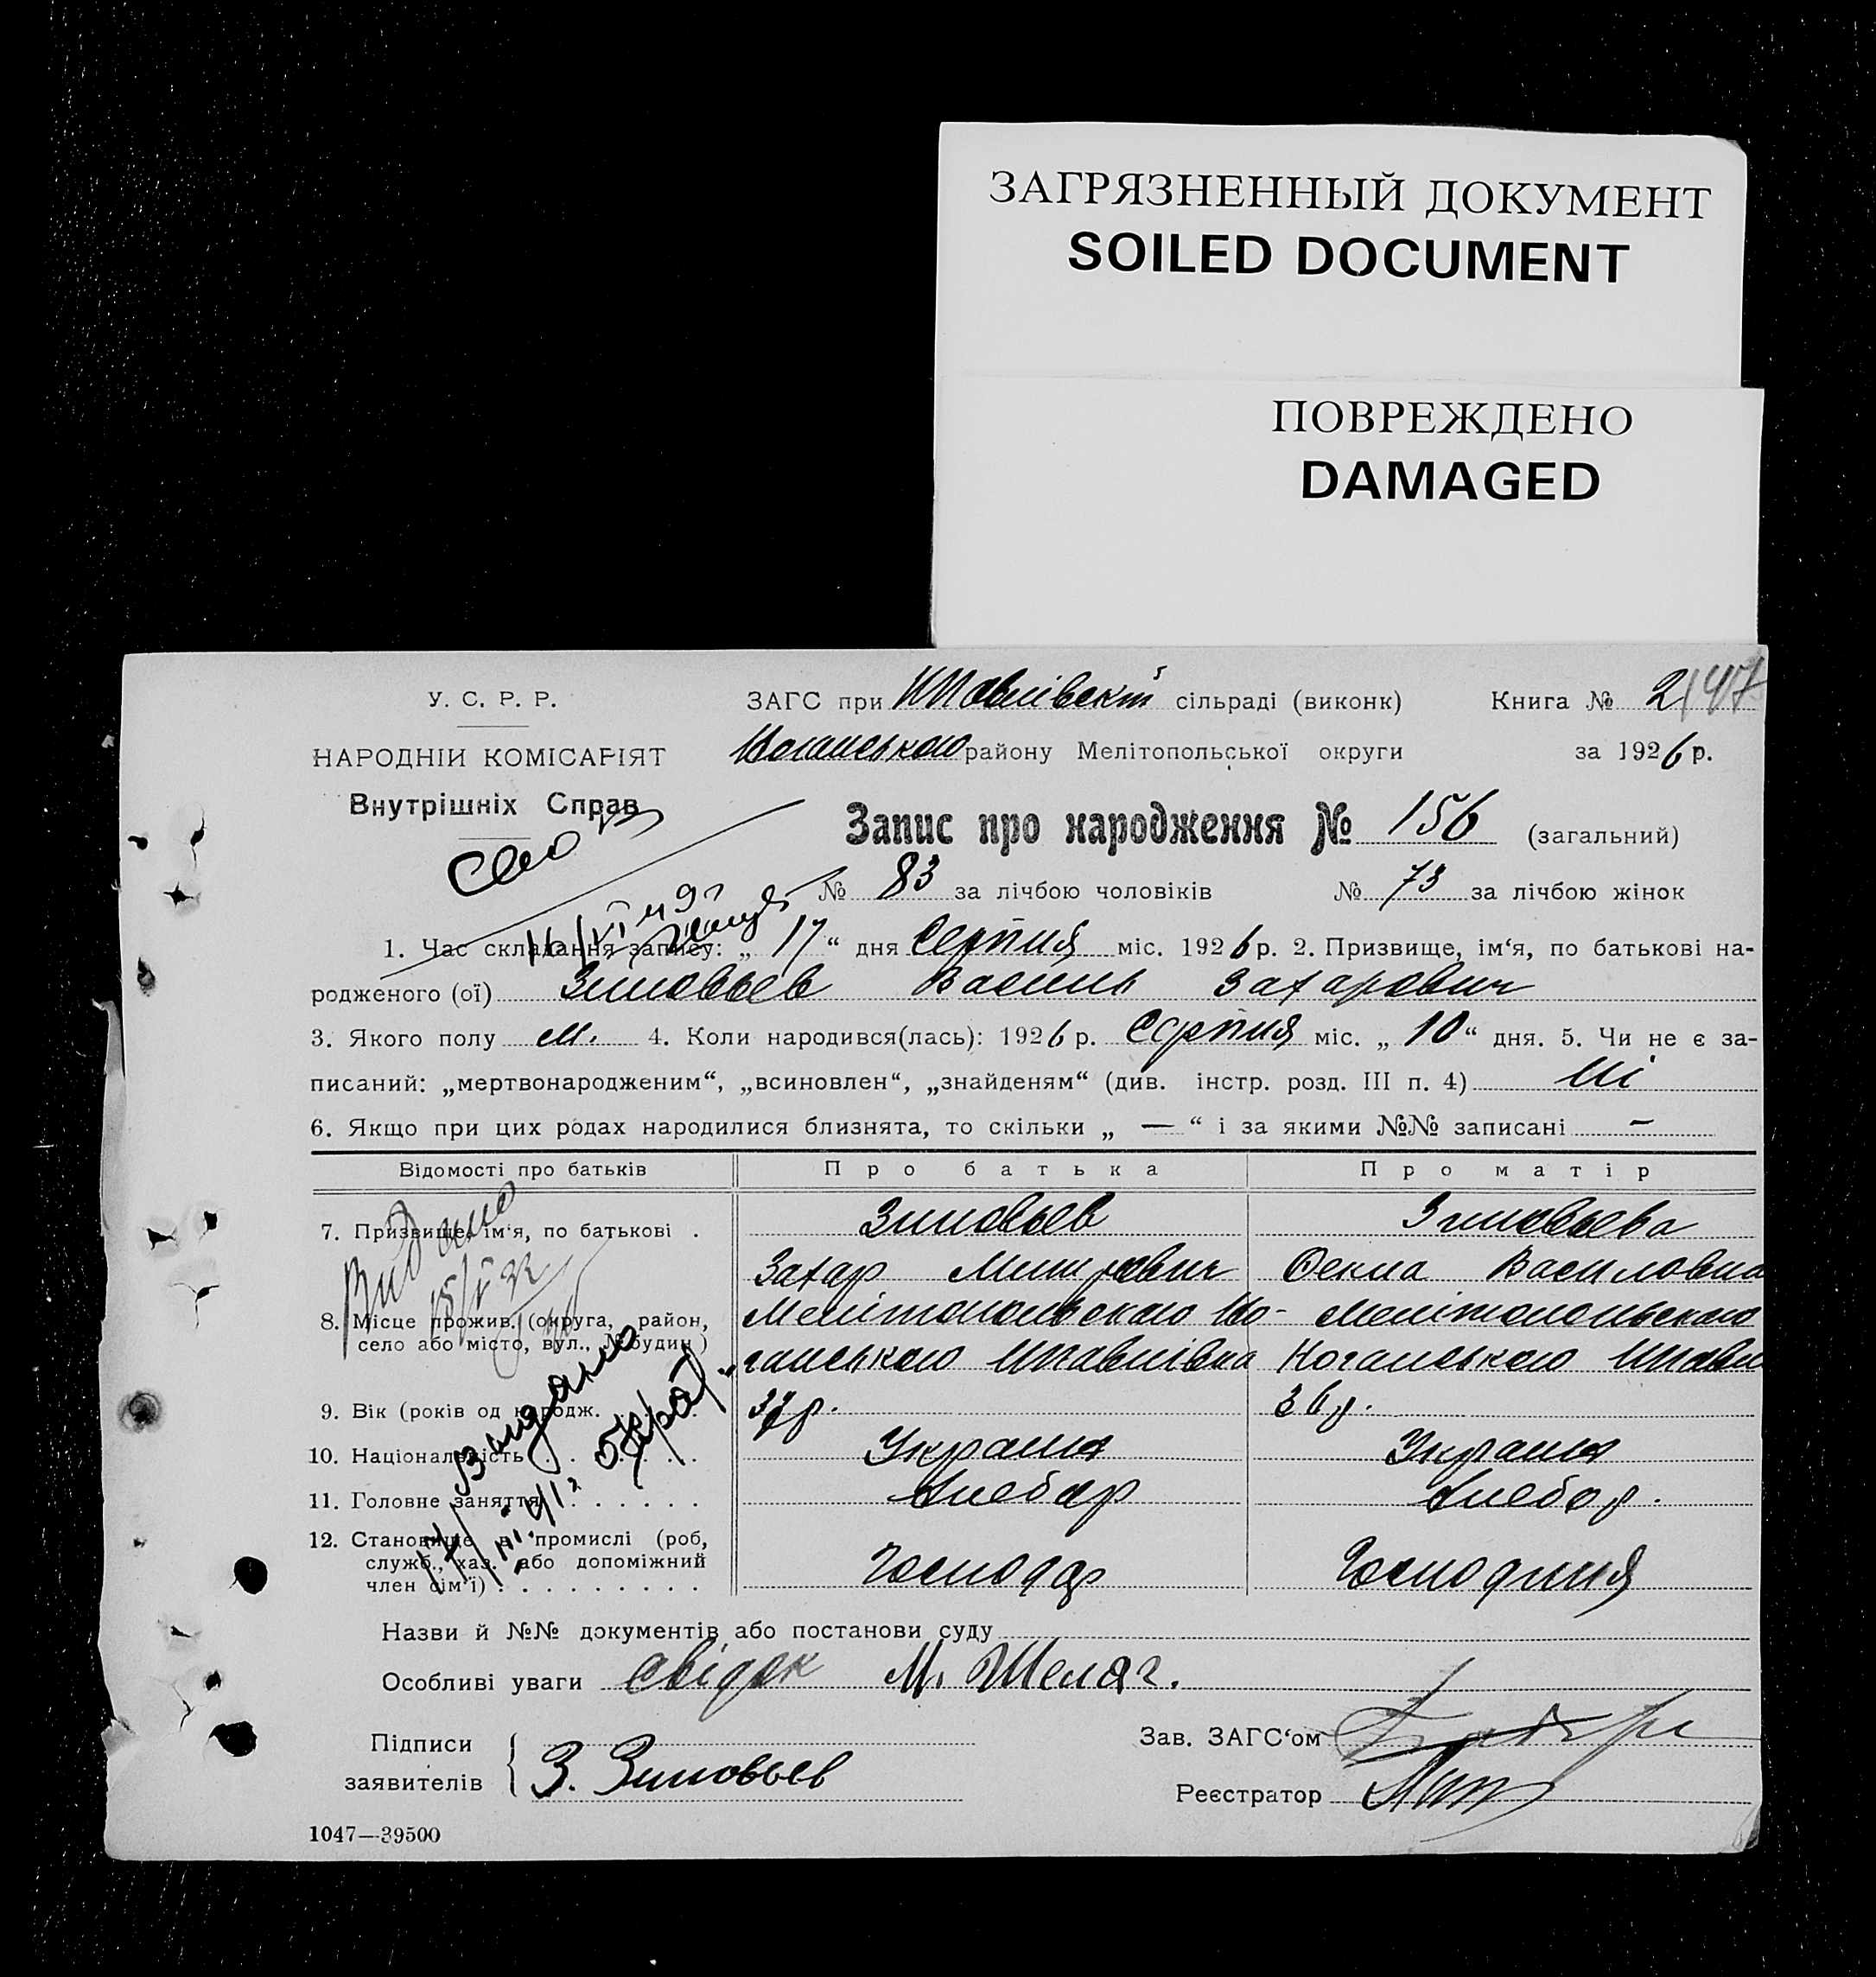 ЗАГРЯЗНЕННЫЙ ДОКУМЕНТ
SOILED DOCUMENT
ПОВРЕЖДЕНО
DAMAGED
У. С. Р. Р.
ЗАГС при сільраді (виконк) Книга № 2
НАРОДНІЙ КОМІСАРІЯТ
району Мелітопольської округи за 1926 р.
Внутрішніх Справ
Запис про народження № 156 (загальний)
№ 83 за лічбою чоловіків № 73 за лічбою жінок
1. Час складання запису: „ 17 “ дня Серпня міс. 1926 р. 2. Призвище, ім‘я, по батькові на-
родженого (ої) Зиновьев Василь Захарович
3. Якого полу м. 4. Коли народився(лась): 1926 р. Серпня міс. „ 10 “ дня. 5. Чи не є за-
писаний: „мертвонародженим“, „всиновлен“, „знайденям“ (див. інстр. розд. III п. 4) Ні
6. Якщо при цих родах народилися близнята, то скільки „ — “ і за якими №№ записані –
Відомості про батьків Про батька Про матір
7. Призвище, ім‘я, по батькові . Зиновьев Зиновьева
Захар Василовна
8. Місце прожив. (округа, район, Мелітопольского Но- Мелітопольского
село або місто, вул., № будин.) гайського Ногайського
9. Вік (років од народж. 36 р.
10. Національність Україн Україн
11. Головне заняття Хлебор Хлебор.
12. Становище в промислі (роб,
служб., хаз. або допоміжний Господар Господиня
член сім‘ї)
Назви й №№ документів або постанови суду
Особливі уваги свідок М. Шеляг.
Підписи
заявителів З. Зиновьев
Зав. ЗАГС‘ом
Реєстратор
1047—39500
Видано
Видано